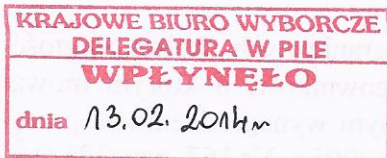 KRAJOWE BIURO WYBORCZE
DELEGATURA W PILE
WPŁYNĘŁO
dnia 13.02.2014